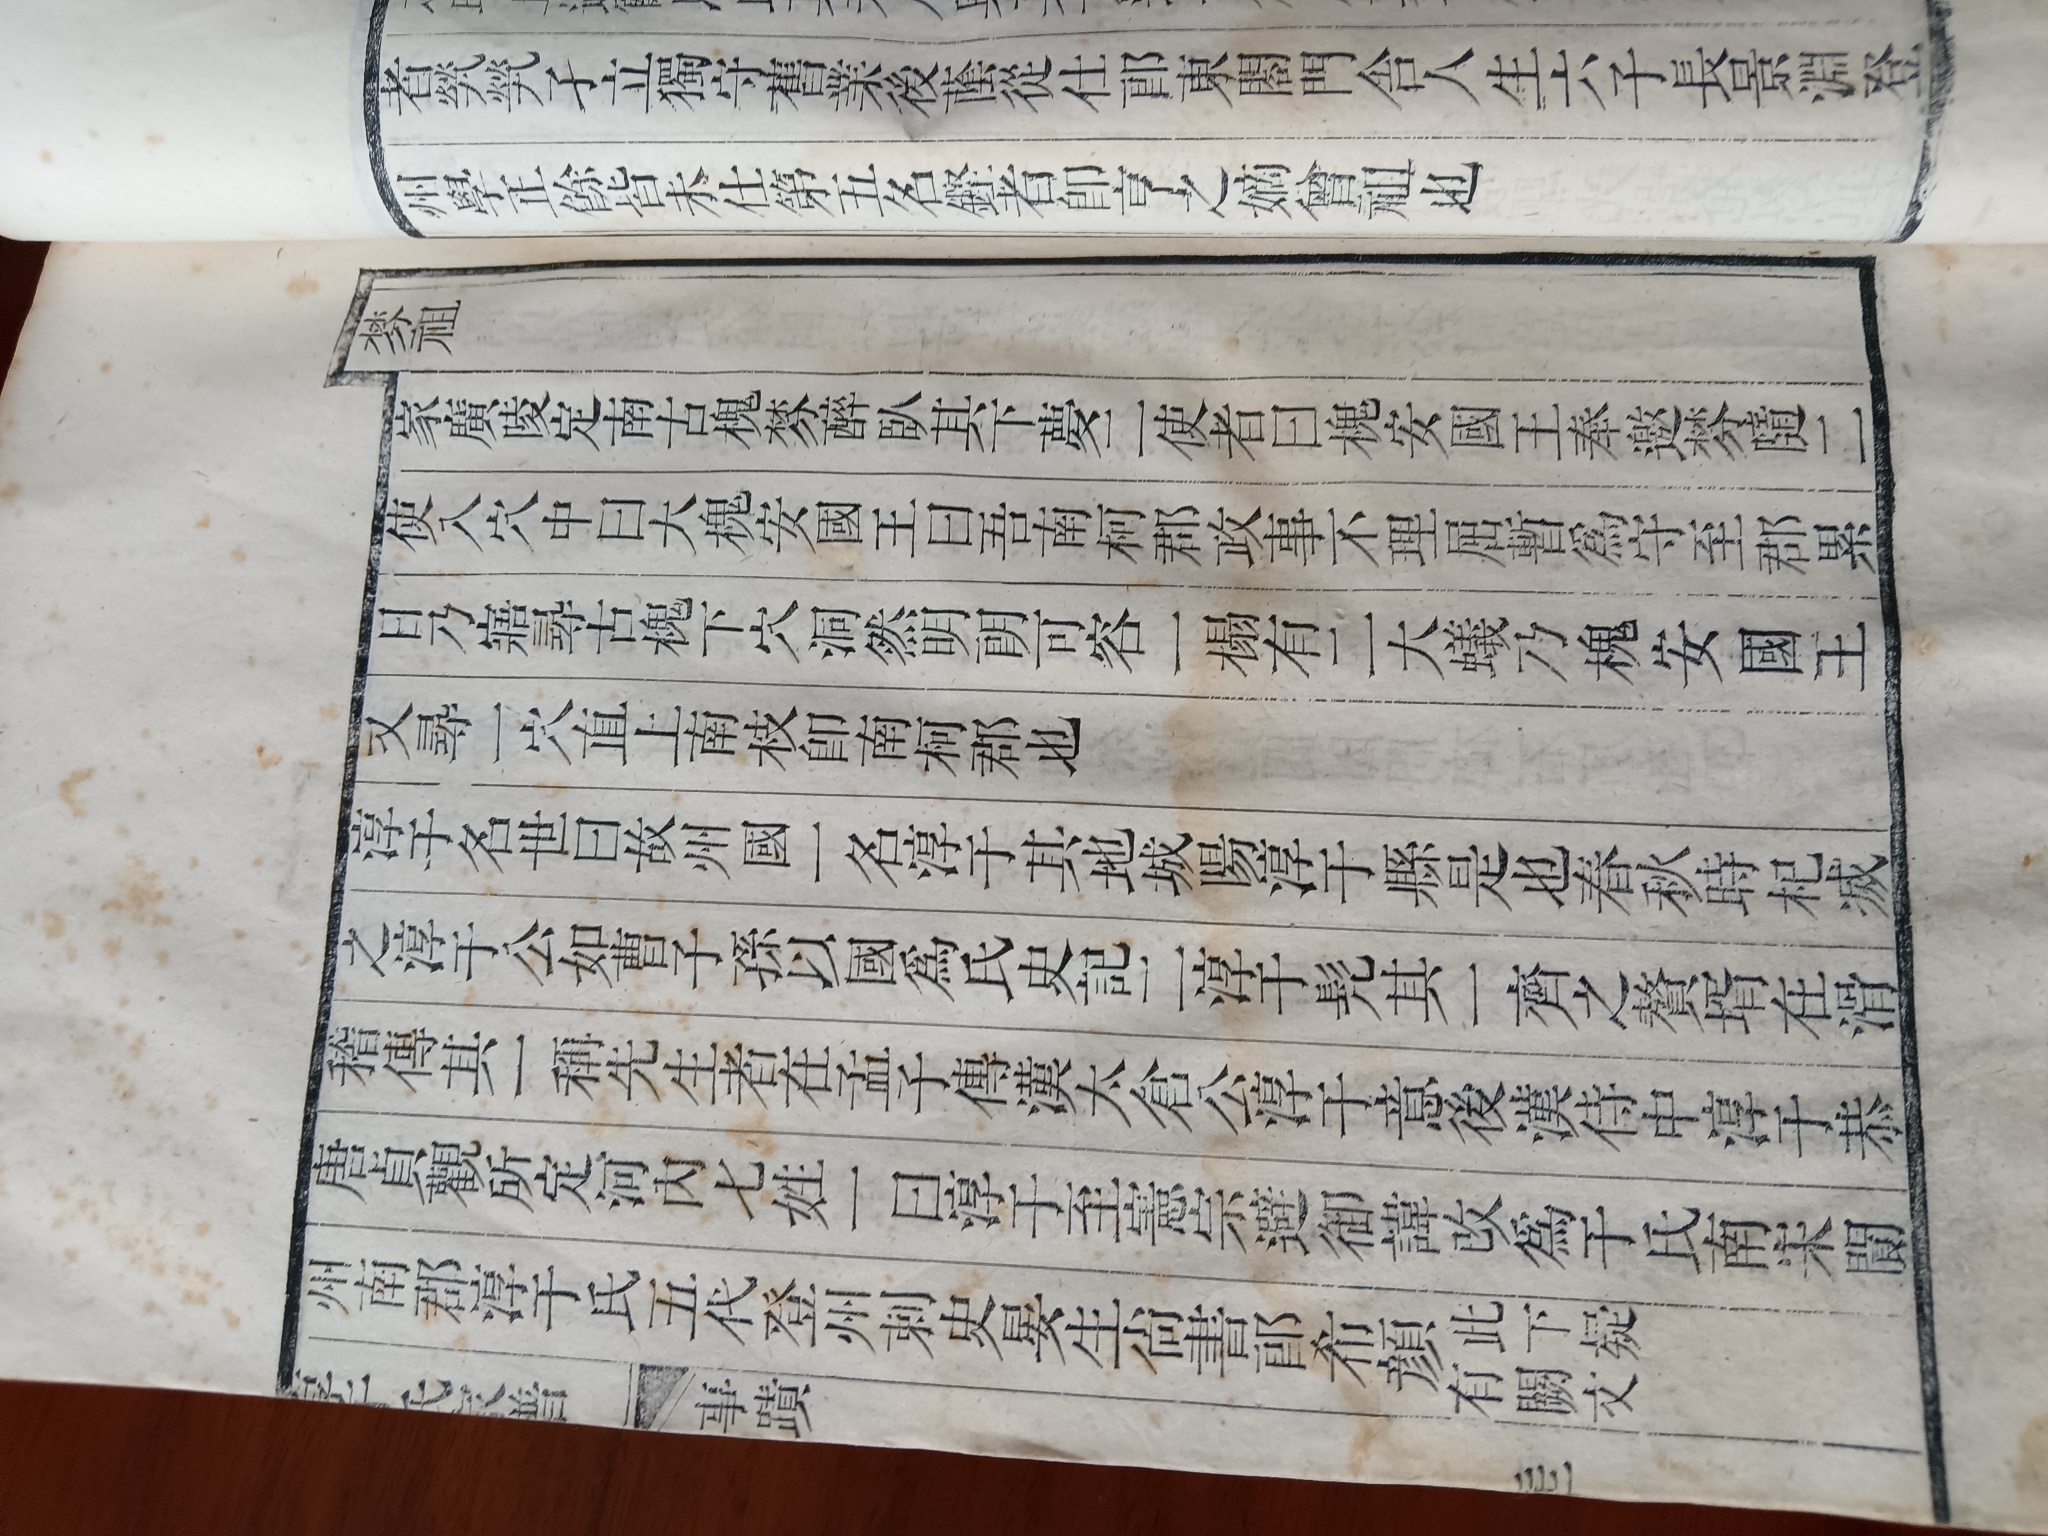 者煢煢孑立獨守舊業後蔭從仕郎東閤門舍人生六子長景淵登
州學正餘皆未仕第五名鑒者即亨之嫡曾祖也
棼祖
家廣陵宅南古槐棼醉臥其下夢二使者曰槐安國王奉邀棼隨二
使入穴中曰大槐安國王曰吾南柯郡政事不理屈暫爲守至郡累
日乃寤尋古槐下穴洞然明朗可容一榻有一大蟻乃槐安國王
又尋一穴直上南枝即南柯郡也
淳于名世曰故州國一名淳于其地城陽淳于縣是也春秋時杞滅
之淳于公如曹子孫以國爲氏史記二淳于髡其一齊之贅壻在滑
稽傳其一稱先生者在孟子傳漢太倉公淳于意後漢侍中淳于恭
唐貞觀所定河內七姓一曰淳于至憲宗避御諱改爲于氏南宋閬
州南郡淳于氏五代登州刺史晏生尚書郎布顏此下疑
有闕文
事蹟
三